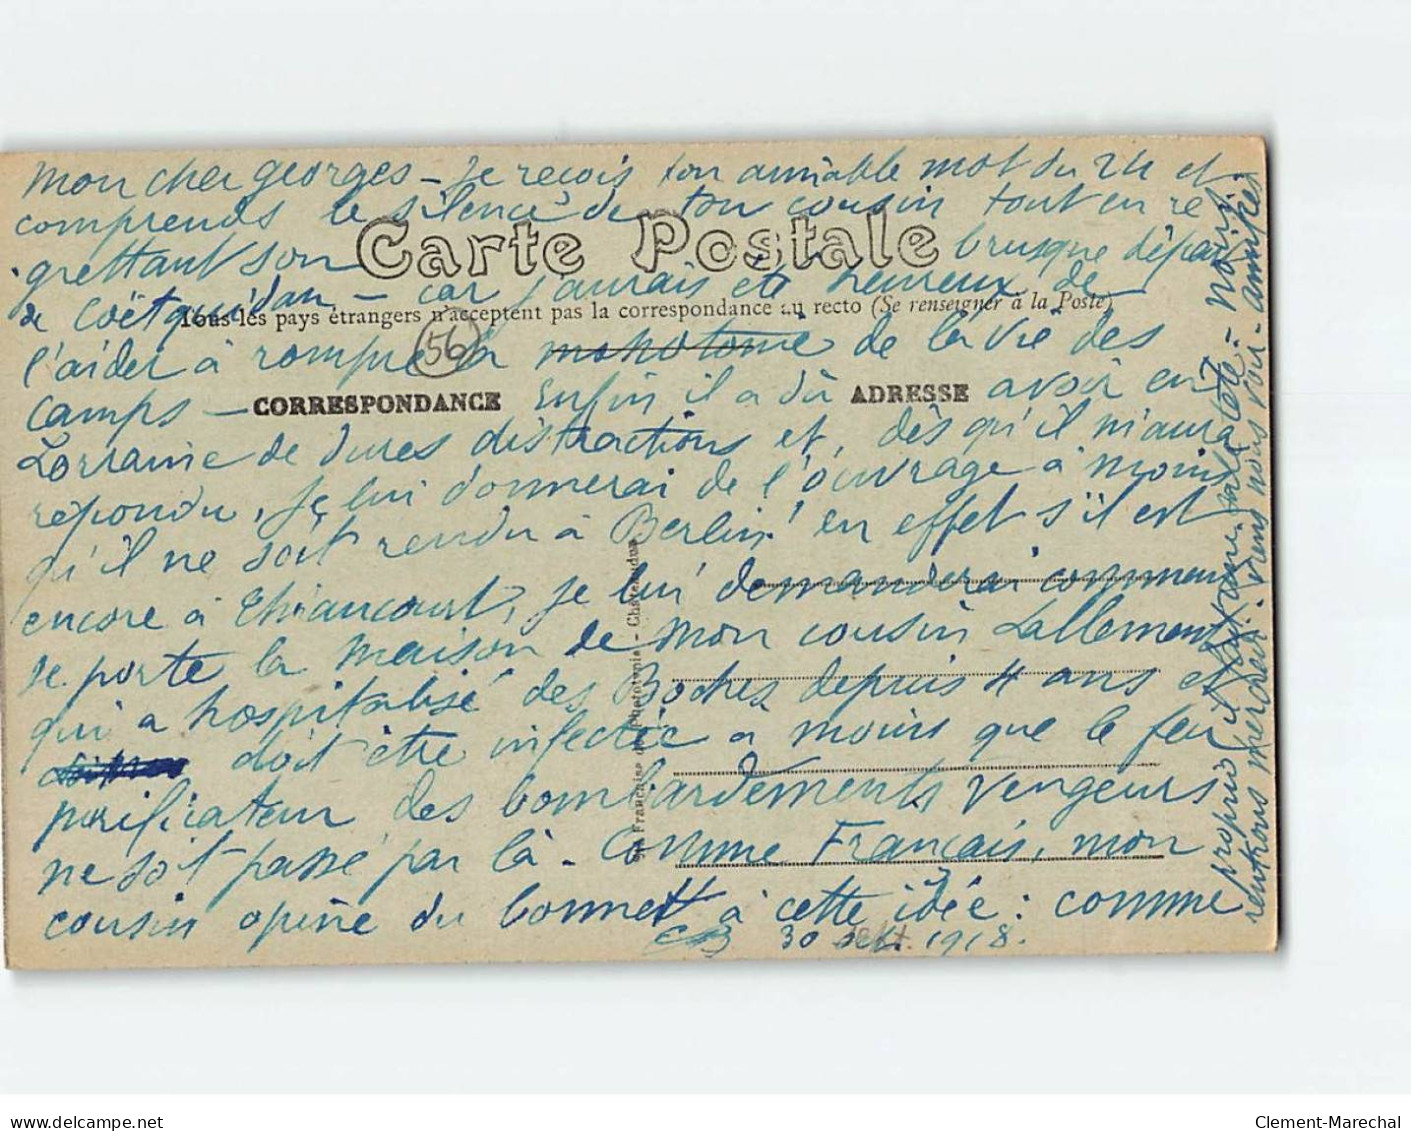 mon cher georges – je reçois ton aimable mot du 24 et
comprends le silence de ton cousin tout en re
Carte Postale
grettant son brusque départ
de Coëtquidan – car j'aurais été heureux de
Tous les pays étrangers n'acceptent pas la correspondance au recto (Se renseigner à la Poste)
l'aider à rompre la monotonie de la vie des
56
camps – enfin il a dû avoir en
CORRESPONDANCE ADRESSE
Lorraine de dures distractions et, dès qu'il m'aura
répondu, je lui donnerai de l'ouvrage à moins
qu'il ne soit rendu à Berlin! en effet s'il est
encore à Thiaucourt, je lui demanderai comment
se porte la maison de mon cousin Lallement
qui a hospitalisé des Boches depuis 4 ans et
doit être infectée à moins que le feu
purificateur des bombardements vengeurs
ne soit passé par là – Comme Français, mon
cousin opine du bonnet à cette idée : comme
30 sept. 1918.
proprio il fait une sale tête – nous
rentrons mercredi. viens nous voir – amitiés
Sté Française de Phototypie – Châteaudun
Clement-Marechal
delcampe.net